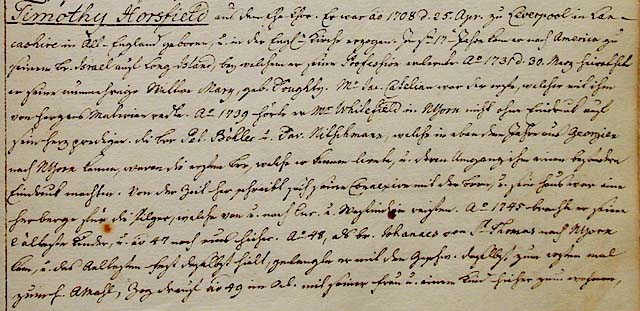 Timothy Horsfield aus dem Ehe Chor. Er war ao 1708 d. 25. Apr. zu Liverpool in Lan-
cashire in Alt-England geboren, u. in der Engl. Kirche erzogen. In s. 17 Jahre kam er nach America zu
seinem Br. Israel auf Long Island bey welchem er seine Profession erlernte. Ao 1731 d. 30. May heirathete
er seine nunmehrige Witwe Mary, geb. Doughty. Mr. war der erste, welcher mit ihm
von herzens Materien redte. Ao 1739 hörte er Mr. Whitefield in NYork nicht ohne Eindruck auf
sein herz predigen. die Br. Pet. Böhler u. Dav. Nitschmann, welche in eben dem Jahre aus Georgien
nach NYork kamen, waren die ersten Brr, welche er kennen lernte, u. deren Umgang ihm einen besondern
Eindruck machten. Von der Zeit her schreibt sich seine Connexion mit den Brrn u. sein Haus war eine
herberge für die Pilger, welche von u. nach Eur. u. Westindien reisten. Ao 1745 brachte er seine
2 älteste Kinder, u. ao 47 noch hieher. Ao 48, als Br. Johannes von St. Thomas nach NYork
kam, u. das Aeltesten Fest daselbst hielt, gelangte er mit den Geschw. daselbst, zum ersten mal
zum h. Amahl, Zog drauf ao 49 im mit seiner Frau u. einem Kind hieher zum wohnen,